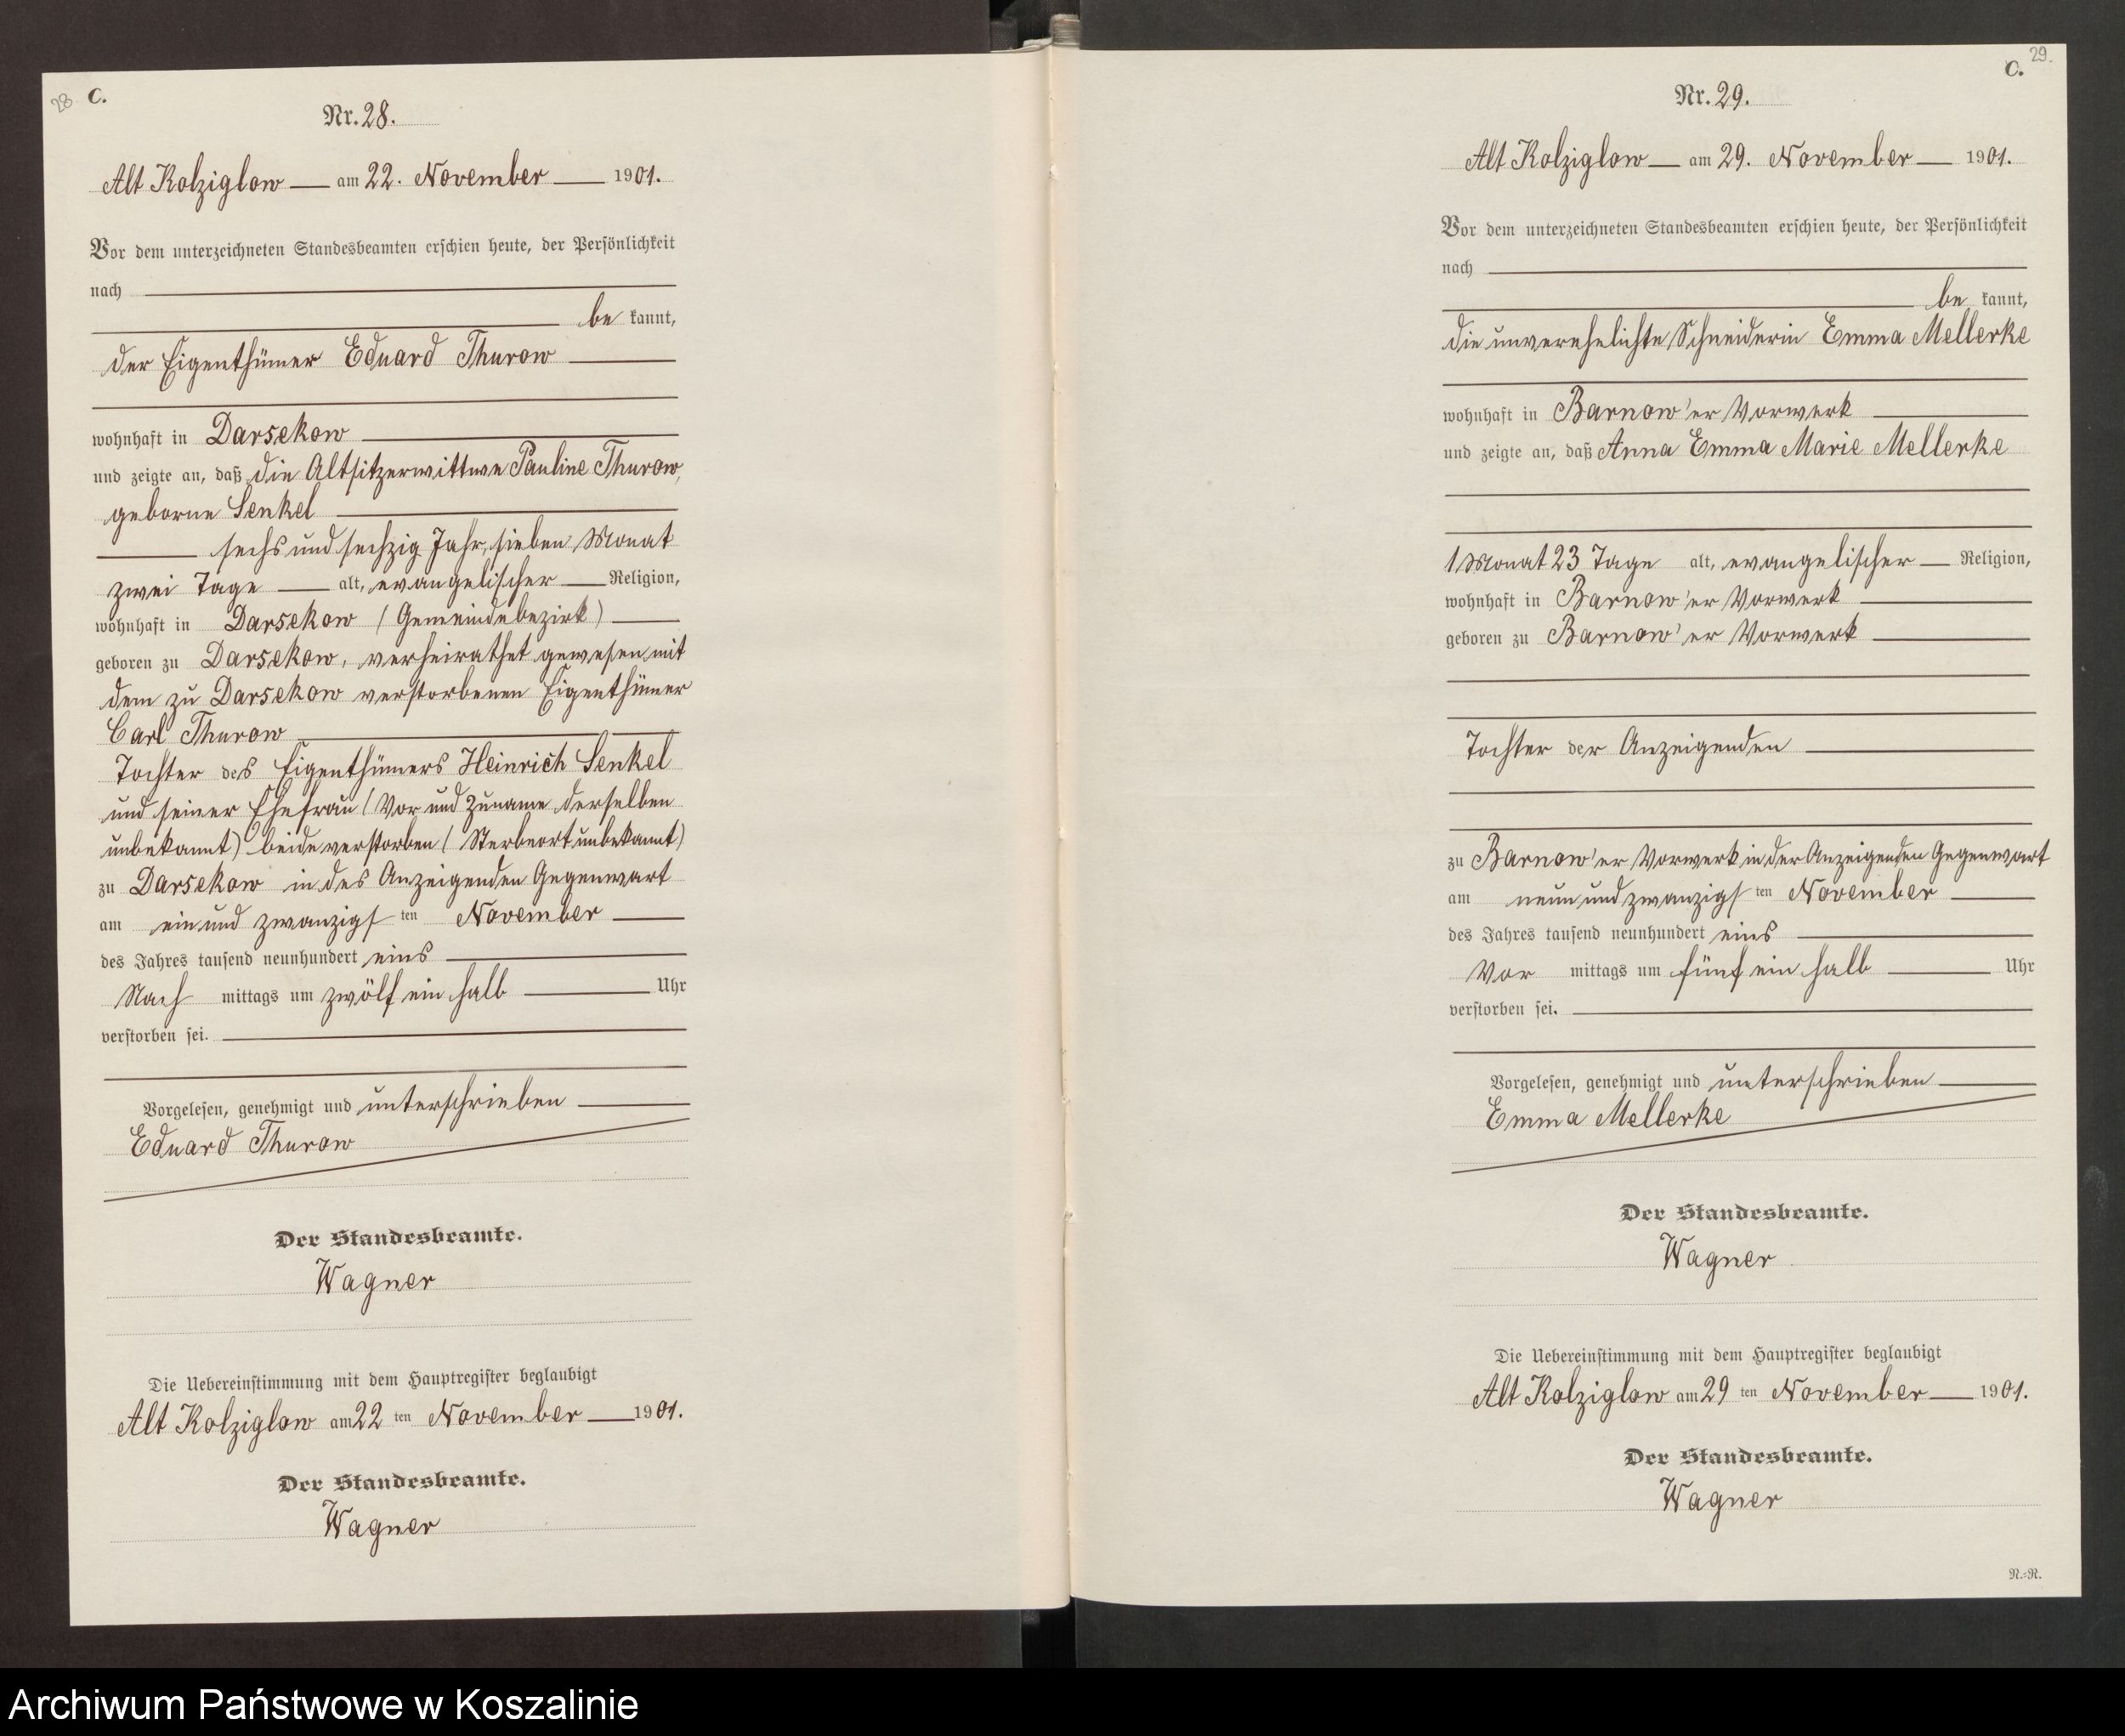 28 C.
Nr. 28.
Alt Kolziglow am 22. November 1901.
Vor dem unterzeichneten Standesbeamten erschien heute, der Persönlichkeit
nach
be kannt,
der Eigenthümer Eduard Thurow
wohnhaft in Darsekow
und zeigte an, daß die Altsitzerwittwe Pauline Thurow,
geborne Senkel
sechs und sechzig Jahr, sieben Monat
zwei Tage alt, evangelischer Religion,
wohnhaft in Darsekow (Gemeindebezirk)
geboren zu Darsekow, verheirathet gewesen mit
dem zu Darsekow verstorbenen Eigenthümer
Carl Thurow
Tochter des Eigenthümers Heinrich Senkel
und seiner Ehefrau (Vor und Zuname derselben
unbekannt) beide verstorben (Sterbeort unbekannt)
zu Darsekow in des Anzeigenden Gegenwart
am ein und zwanzigsten November
des Jahres tausend neunhundert eins
Nach mittags um zwölf ein halb Uhr
verstorben sei.
Vorgelesen, genehmigt und unterschrieben
Eduard Thurow
Der Standesbeamte.
Wagner
Die Uebereinstimmung mit dem Hauptregister beglaubigt
Alt Kolziglow am 22 ten November 1901.
Der Standesbeamte.
Wagner
C. 29.
Nr. 29.
Alt Kolziglow am 29. November 1901.
Vor dem unterzeichneten Standesbeamten erschien heute, der Persönlichkeit
nach
be kannt,
die unverehelichte Schneiderin Emma Mellerke
wohnhaft in Barnow'er Vorwerk
und zeigte an, daß Anna Emma Marie Mellerke
1 Monat 23 Tage alt, evangelischer Religion,
wohnhaft in Barnow'er Vorwerk
geboren zu Barnow'er Vorwerk
Tochter der Anzeigenden
zu Barnow'er Vorwerk in der Anzeigenden Gegenwart
am neun und zwanzigsten November
des Jahres tausend neunhundert eins
Vor mittags um fünf ein halb Uhr
verstorben sei.
Vorgelesen, genehmigt und unterschrieben
Emma Mellerke
Der Standesbeamte.
Wagner
Die Uebereinstimmung mit dem Hauptregister beglaubigt
Alt Kolziglow am 29 ten November 1901.
Der Standesbeamte.
Wagner
N.=R.
Archiwum Państwowe w Koszalinie